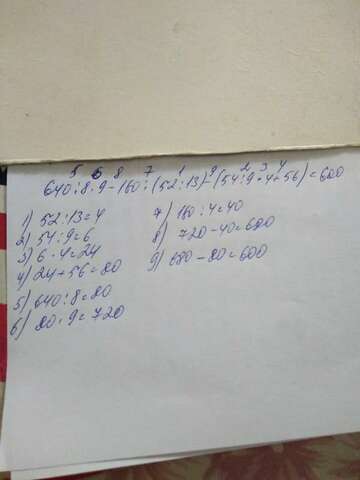 5 6 8 7 1 9 2 3 4
640:8·9-160:(52:13)-(54:9·4+56)=600
1) 52:13=4
2) 54:9=6
3) 6·4=24
4) 24+56=80
5) 640:8=80
6) 80·9=720
7) 160:4=40
8) 720-40=680
9) 680-80=600